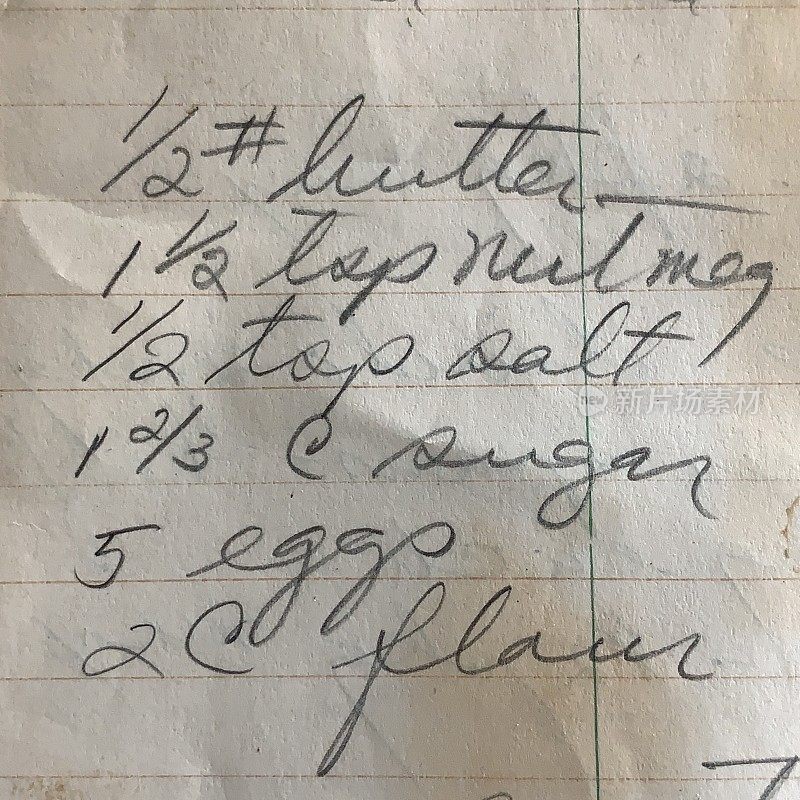 1/2 # butter
1 1/2 tsp nutmeg
1/2 tsp salt
new 新片场素材
1 2/3 C sugar
5 eggs
2 C flour